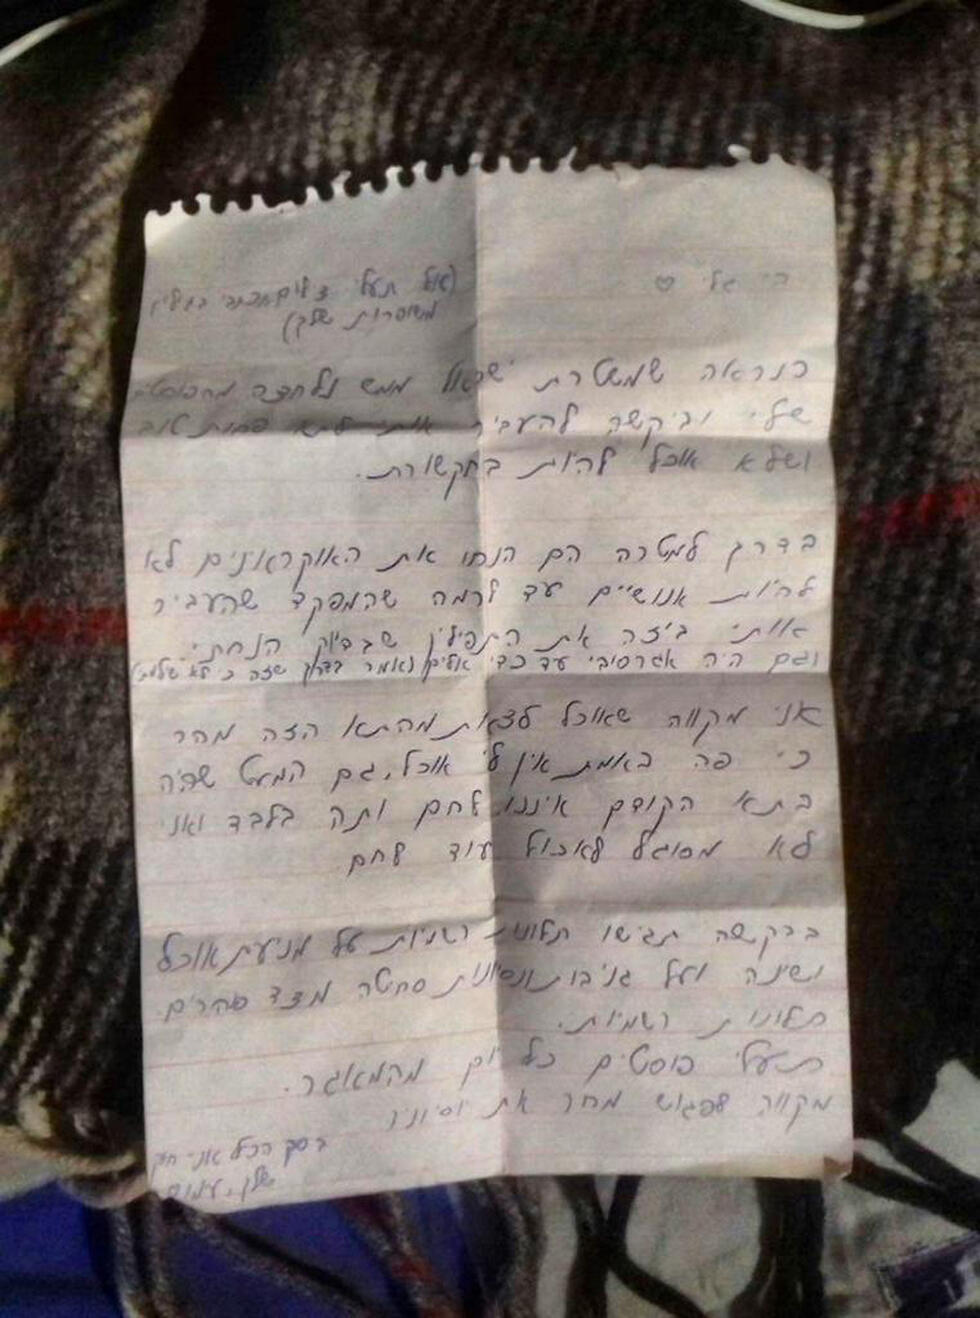 היי גלי ♡
(אל תעלי צילום מכתבי
משופרות שלך)
כנראה שמשטרת ישראל ממש נלחצה מהפוסטים
שלי וביקשה להעביר אותי לתא פחות טוב
ושלא אוכל להיות בתקשורת.
בדרך למטרה הם הנחו את האוקראינים לא
להיות אנושיים עד לרמה שהמפקד שהעביר
אותי ביזה את התפילין שבדיוק הנחתי.
וגם היה אגרסיבי עד כדי אלים (ואמר בדרך שזה כי לא שילמתי)
אני מקווה שאוכל לצאת מהתא הזה מחר
כי פה באמת אין לי אוכל, גם המעט שהיה
בתא הקודם איננו לחם ותה בלבד ואני
לא מסוגל לאכול עוד לחם
בבקשה תגישו תלונות רשמיות על מניעת אוכל
ושינה ועל גניבות ונסיונות סחיטה מצד סוהרים.
תלונות רשמיות.
תעלי פוסטים כל יום מהמאגר.
מקווה לפגוש מחר את
בסך הכל אני חזק
שלך, עמוס